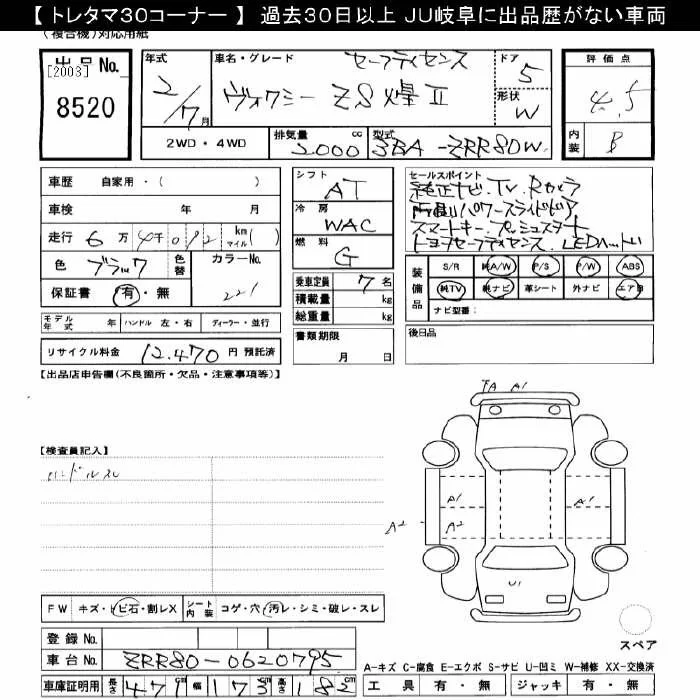 【トレタマ30コーナー】 過去30日以上 JU岐阜に出品歴がない車両
(複合機)対応用紙
出品No.
[2003]
8520
年式
2/7月
車名・グレード
セーフティセンス
ヴォクシー ZS煌Ⅱ
ドア
5
形状
W
評価点
4.5
内装
B
2WD・4WD
排気量 2000 cc
型式 3BA-ZRR80W
車歴 自家用・( )
車検 年 月
走行 6万4千012 km マイル( )
色 ブラック 色替
カラーNo. 221
保証書 有・無
シフト AT
冷房 WAC
燃料 G
乗車定員 7名
積載量 kg
総重量 kg
セールスポイント
純正ナビ.TV.Rカメラ
両側パワースライドドア
スマートキー.プッシュスタート
トヨタセーフティセンス.LEDヘッド
装備品
S/R 純A/W P/S P/W ABS
純TV 純ナビ 革シート 外ナビ エアB
ナビ型番:
モデル年式 年 ハンドル 左・右 ディーラー・並行
リサイクル料金 12,470 円 預託済
書類期限
月 日
後日品
【出品店申告欄(不良箇所・欠品・注意事項等)】
【検査員記入】
ハンドルスレ
A A1
A1
A1
A2
A2
U1
FW キズ・トビ石・割レX
シート内装 コゲ・穴・汚レ・シミ・破レ・スレ
登録No.
車台No. ZRR80-0620795
車庫証明用 長さ 471cm 幅 173cm 高さ 182cm
スペア
A-キズ C-腐食 E-エクボ S-サビ U-凹ミ W-補修 XX-交換済
工具 有・無 ジャッキ 有・無